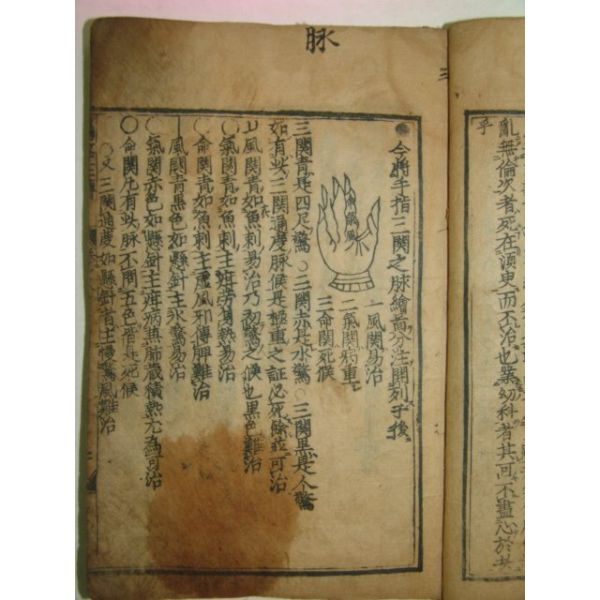 脉
三
亂無倫次者死在須臾而不治也業幼科者其可不盡心於
乎
今將手指三関之脉繪啚分注開列于後
一風関易治
二氣関病重
三命関死候
三関青是四足驚○三関赤是水驚○三関黒是人驚
如有此三関通度脉候是極重之証必死餘並可治
風関青如魚刺易治乃初驚之候也黒色難治
○氣関青如魚刺主疳労身熱易治
○命関青如魚刺主虚風邪傳脾難治
○風関青黒色如懸針主水驚易治
○氣関赤色如懸針主疳病兼肺蔵積熱可治
○命関凡有此脉不問五色皆是死候
○又三関通度如懸針者主慢驚風難治